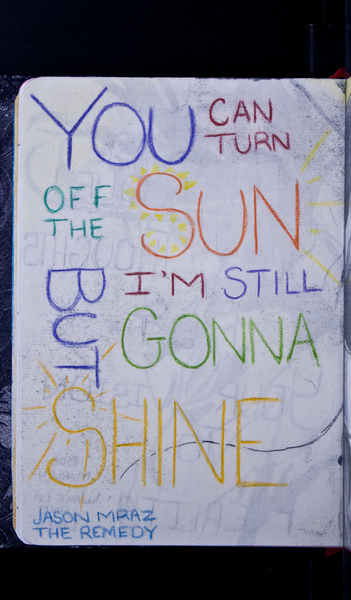 YOU CAN
TURN
OFF
THE SUN
BUT I'M STILL
GONNA
SHINE
JASON MRAZ
THE REMEDY